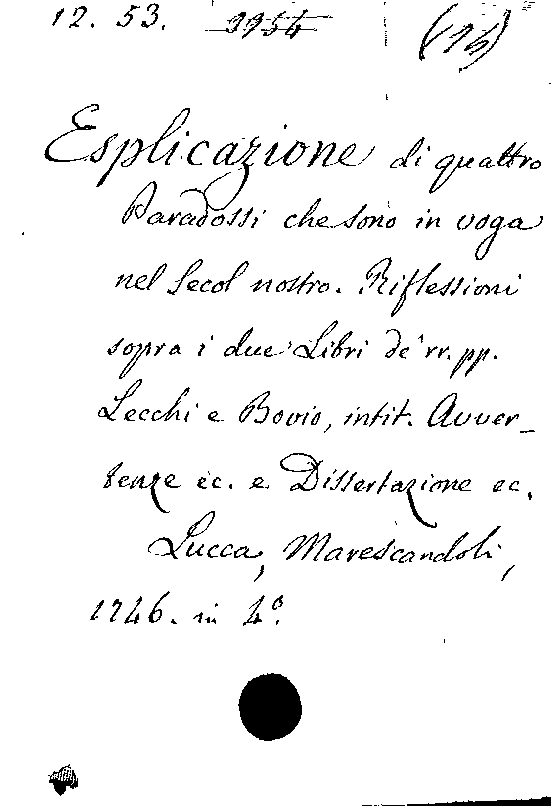 12. 53. 3954 (15)
Esplicazione di quattro
Paradossi che sono in voga
nel Secol nostro. Riflessioni
sopra i due Libri de' rr. pp.
Lecchi e Bovio, intit. Avver-
tenze ec. e Dissertazione ec.
Lucca, Marescandoli,
1746. in 4º.